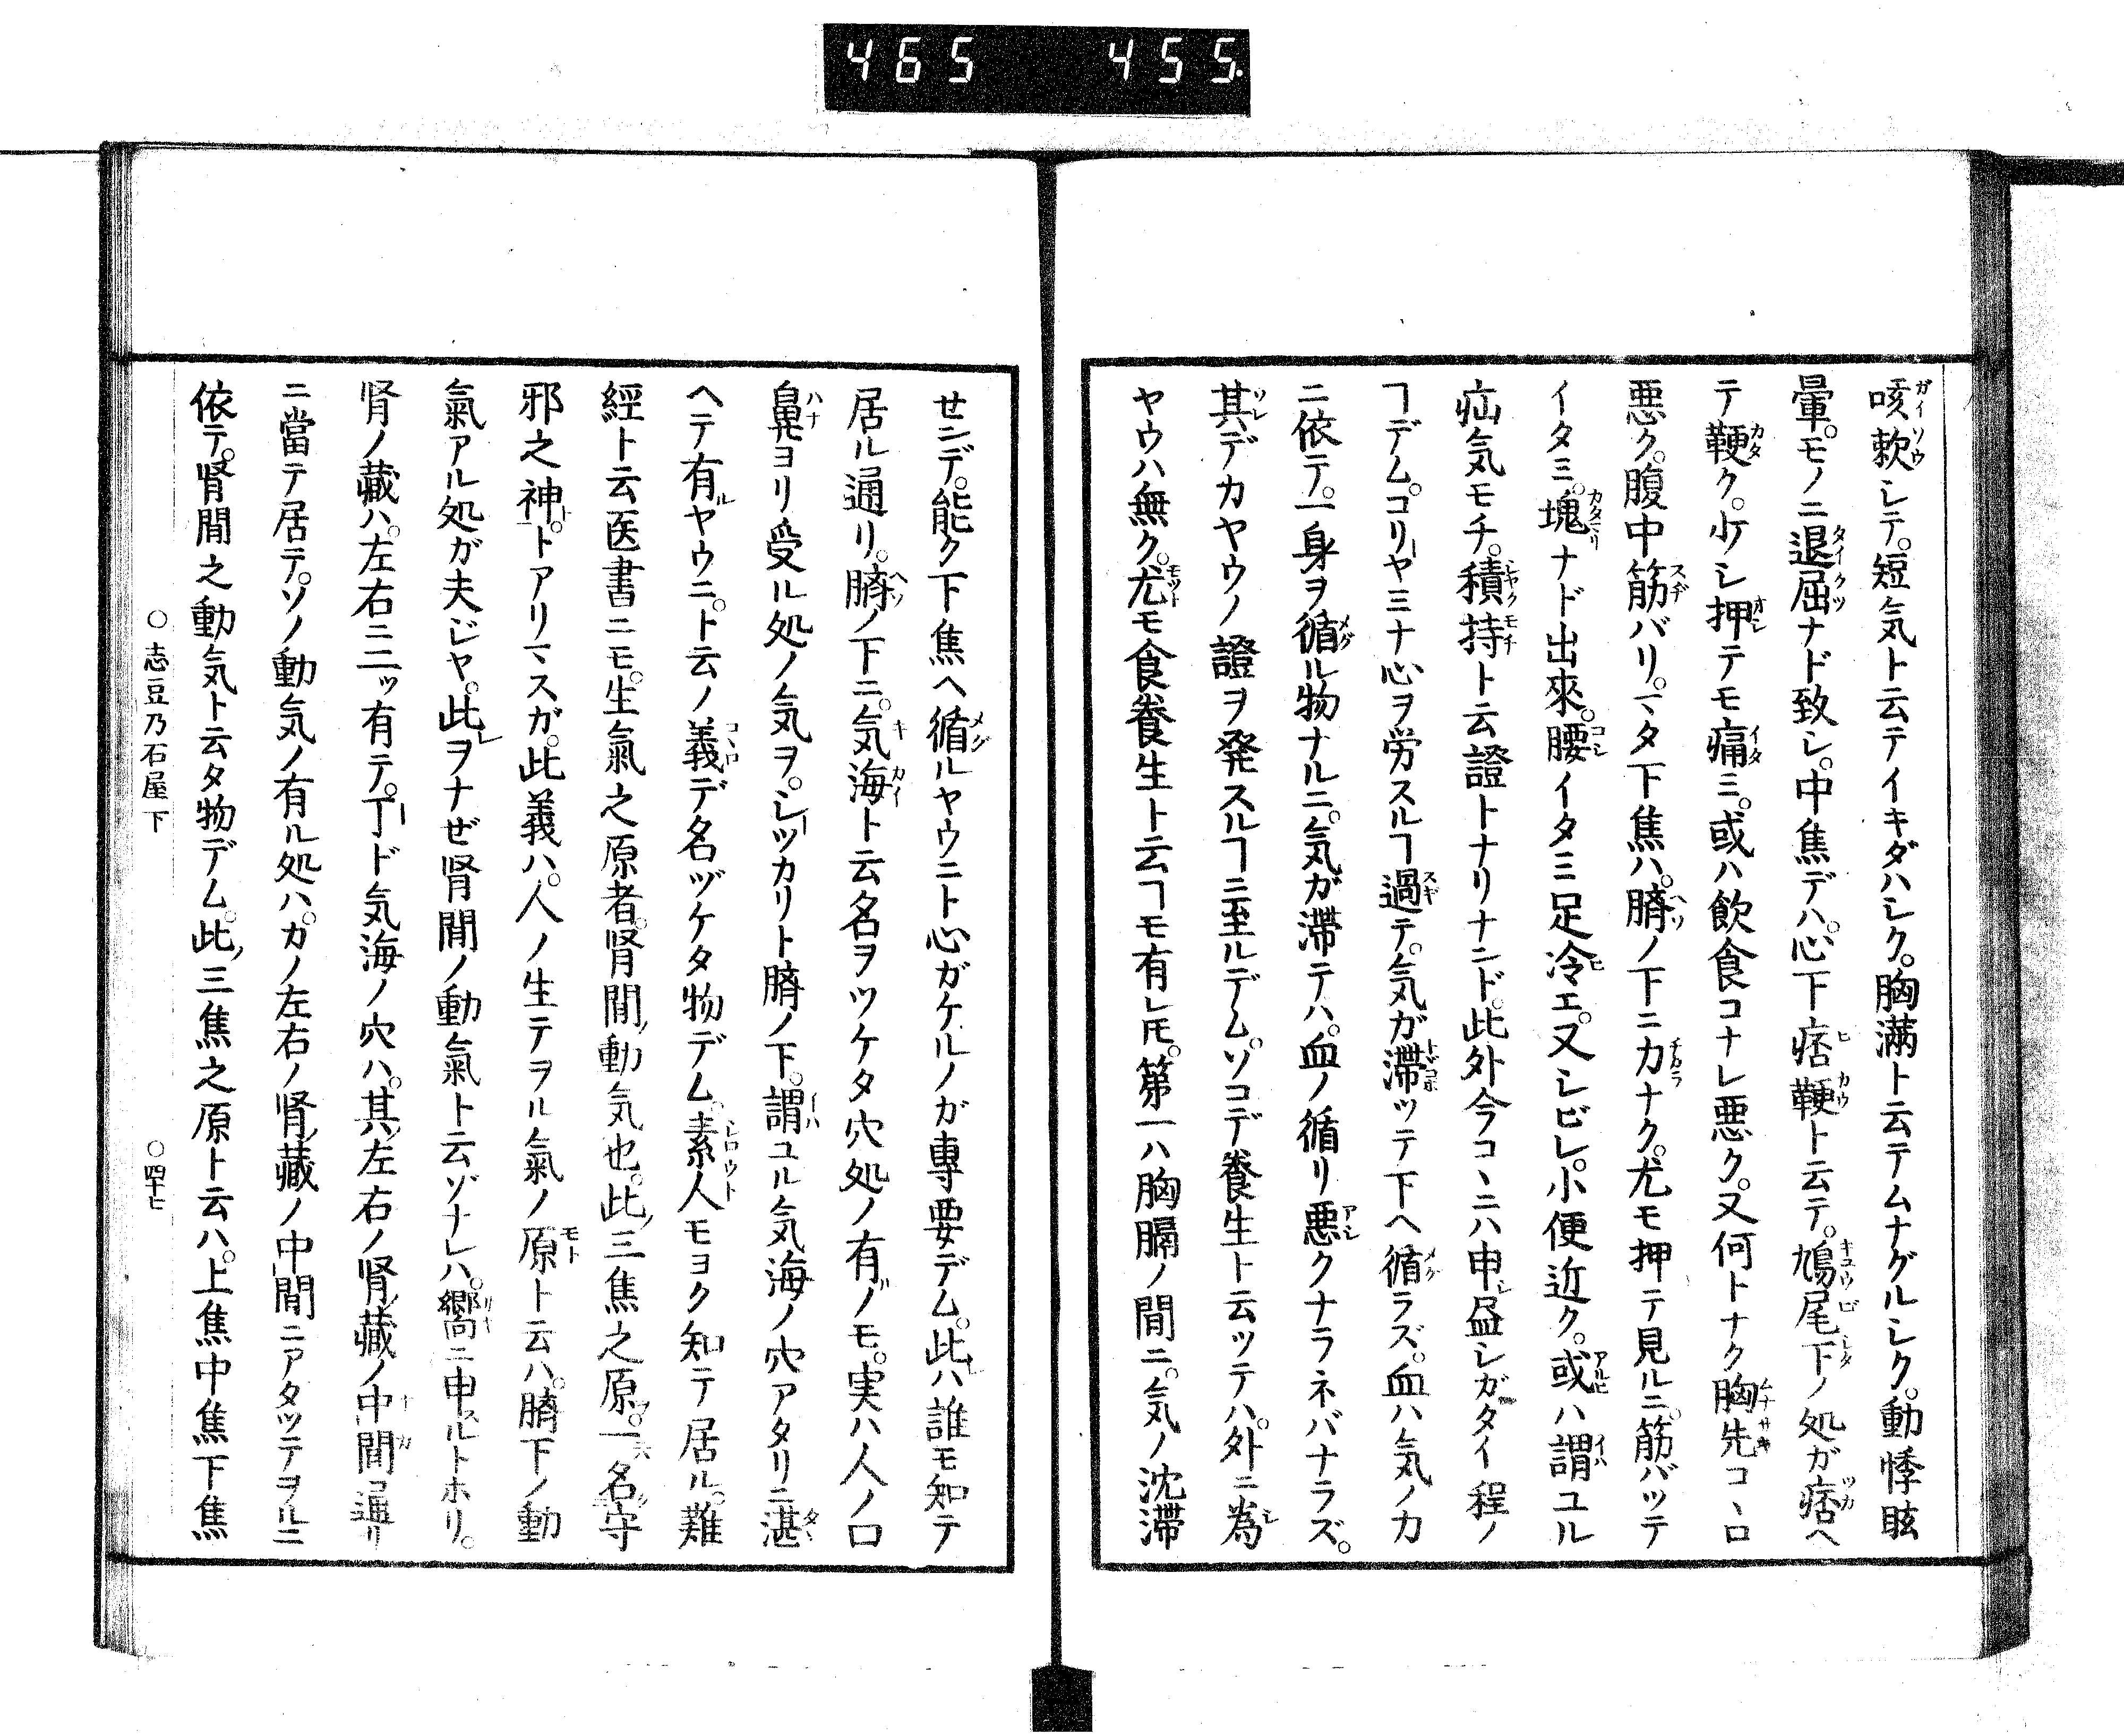 465 455.
咳欶シテ。短気ト云テイキダハシク。胸満ト云テムナグルシク。動悸眩
暈。モノニ退屈ナド致シ。中焦デハ。心下痞鞕ト云テ。鳩尾下ノ処ガ痞ヘ
テ鞕ク。少シ押テモ痛ミ。或ハ飲食コナレ悪ク。又何トナク胸先コヽロ
悪ク。腹中筋バリ。マタ下焦ハ。臍ノ下ニカナク。尤モ押テ見ルニ。筋バッテ
イタミ。塊ナド出來。腰イタミ足冷エ。又シビレ。小便近ク。或ハ謂ユル
疝気モチ。積持ト云證トナリナンド。此外今コヽニハ申シ盡シガタイ程ノ
ヿデム。コリヤミナ心ヲ労スルヿ過テ。気ガ滞ッテ下ヘ循ラズ。血ハ気ノカ
ニ依テ。一身ヲ循ル物ナルニ。気ガ滞テハ。血ノ循リ悪クナラネバナラズ。
其デカヤウノ證ヲ発スルヿニ至ルデム。ソコデ養生ト云ッテハ。外ニ為
ヤウハ無ク。尤モ食養生ト云ヿモ有レ𪜈。第一ハ胸膈ノ間ニ。気ノ沈滞
せンデ。能ク下焦ヘ循ルヤウニト心ガケルノガ專要デム。此ハ誰モ知テ
居ル通リ。臍ノ下ニ。気海ト云名ヲツケタ穴処ノ有ノモ。実ハ人ノ口
鼻ヨリ受ル処ノ気ヲ。シッカリト臍ノ下。謂ユル気海ノ穴アタリニ湛
ヘテ有ルヤウニ。ト云ノ義デ名ヅケタ物デム。素人モヨク知テ居ル。難
經ト云医書ニモ。生氣之原者。腎間ノ動気也。此ノ三焦之原。一名守
邪之神。トアリマスガ。此義ハ。人ノ生テヲル氣ノ原ト云ハ。臍下ノ動
氣アル処ガ夫ジヤ。此レヲナぜ腎間ノ動氣ト云ゾナレハ。嚮ニ申スルトホリ。
腎ノ藏ハ。左右ニ二ッ有テ。丁ド気海ノ穴ハ。其ノ左右ノ腎ノ藏ノ中間通リ
ニ當テ居テ。ソノ動気ノ有ル処ハ。カノ左右ノ腎ノ藏ノ中間ニアタッテヲルニ
依テ。腎間之動気ト云タ物デム。此ノ三焦之原ト云ハ。上焦中焦下焦
○志豆乃石屋下 ○四十七